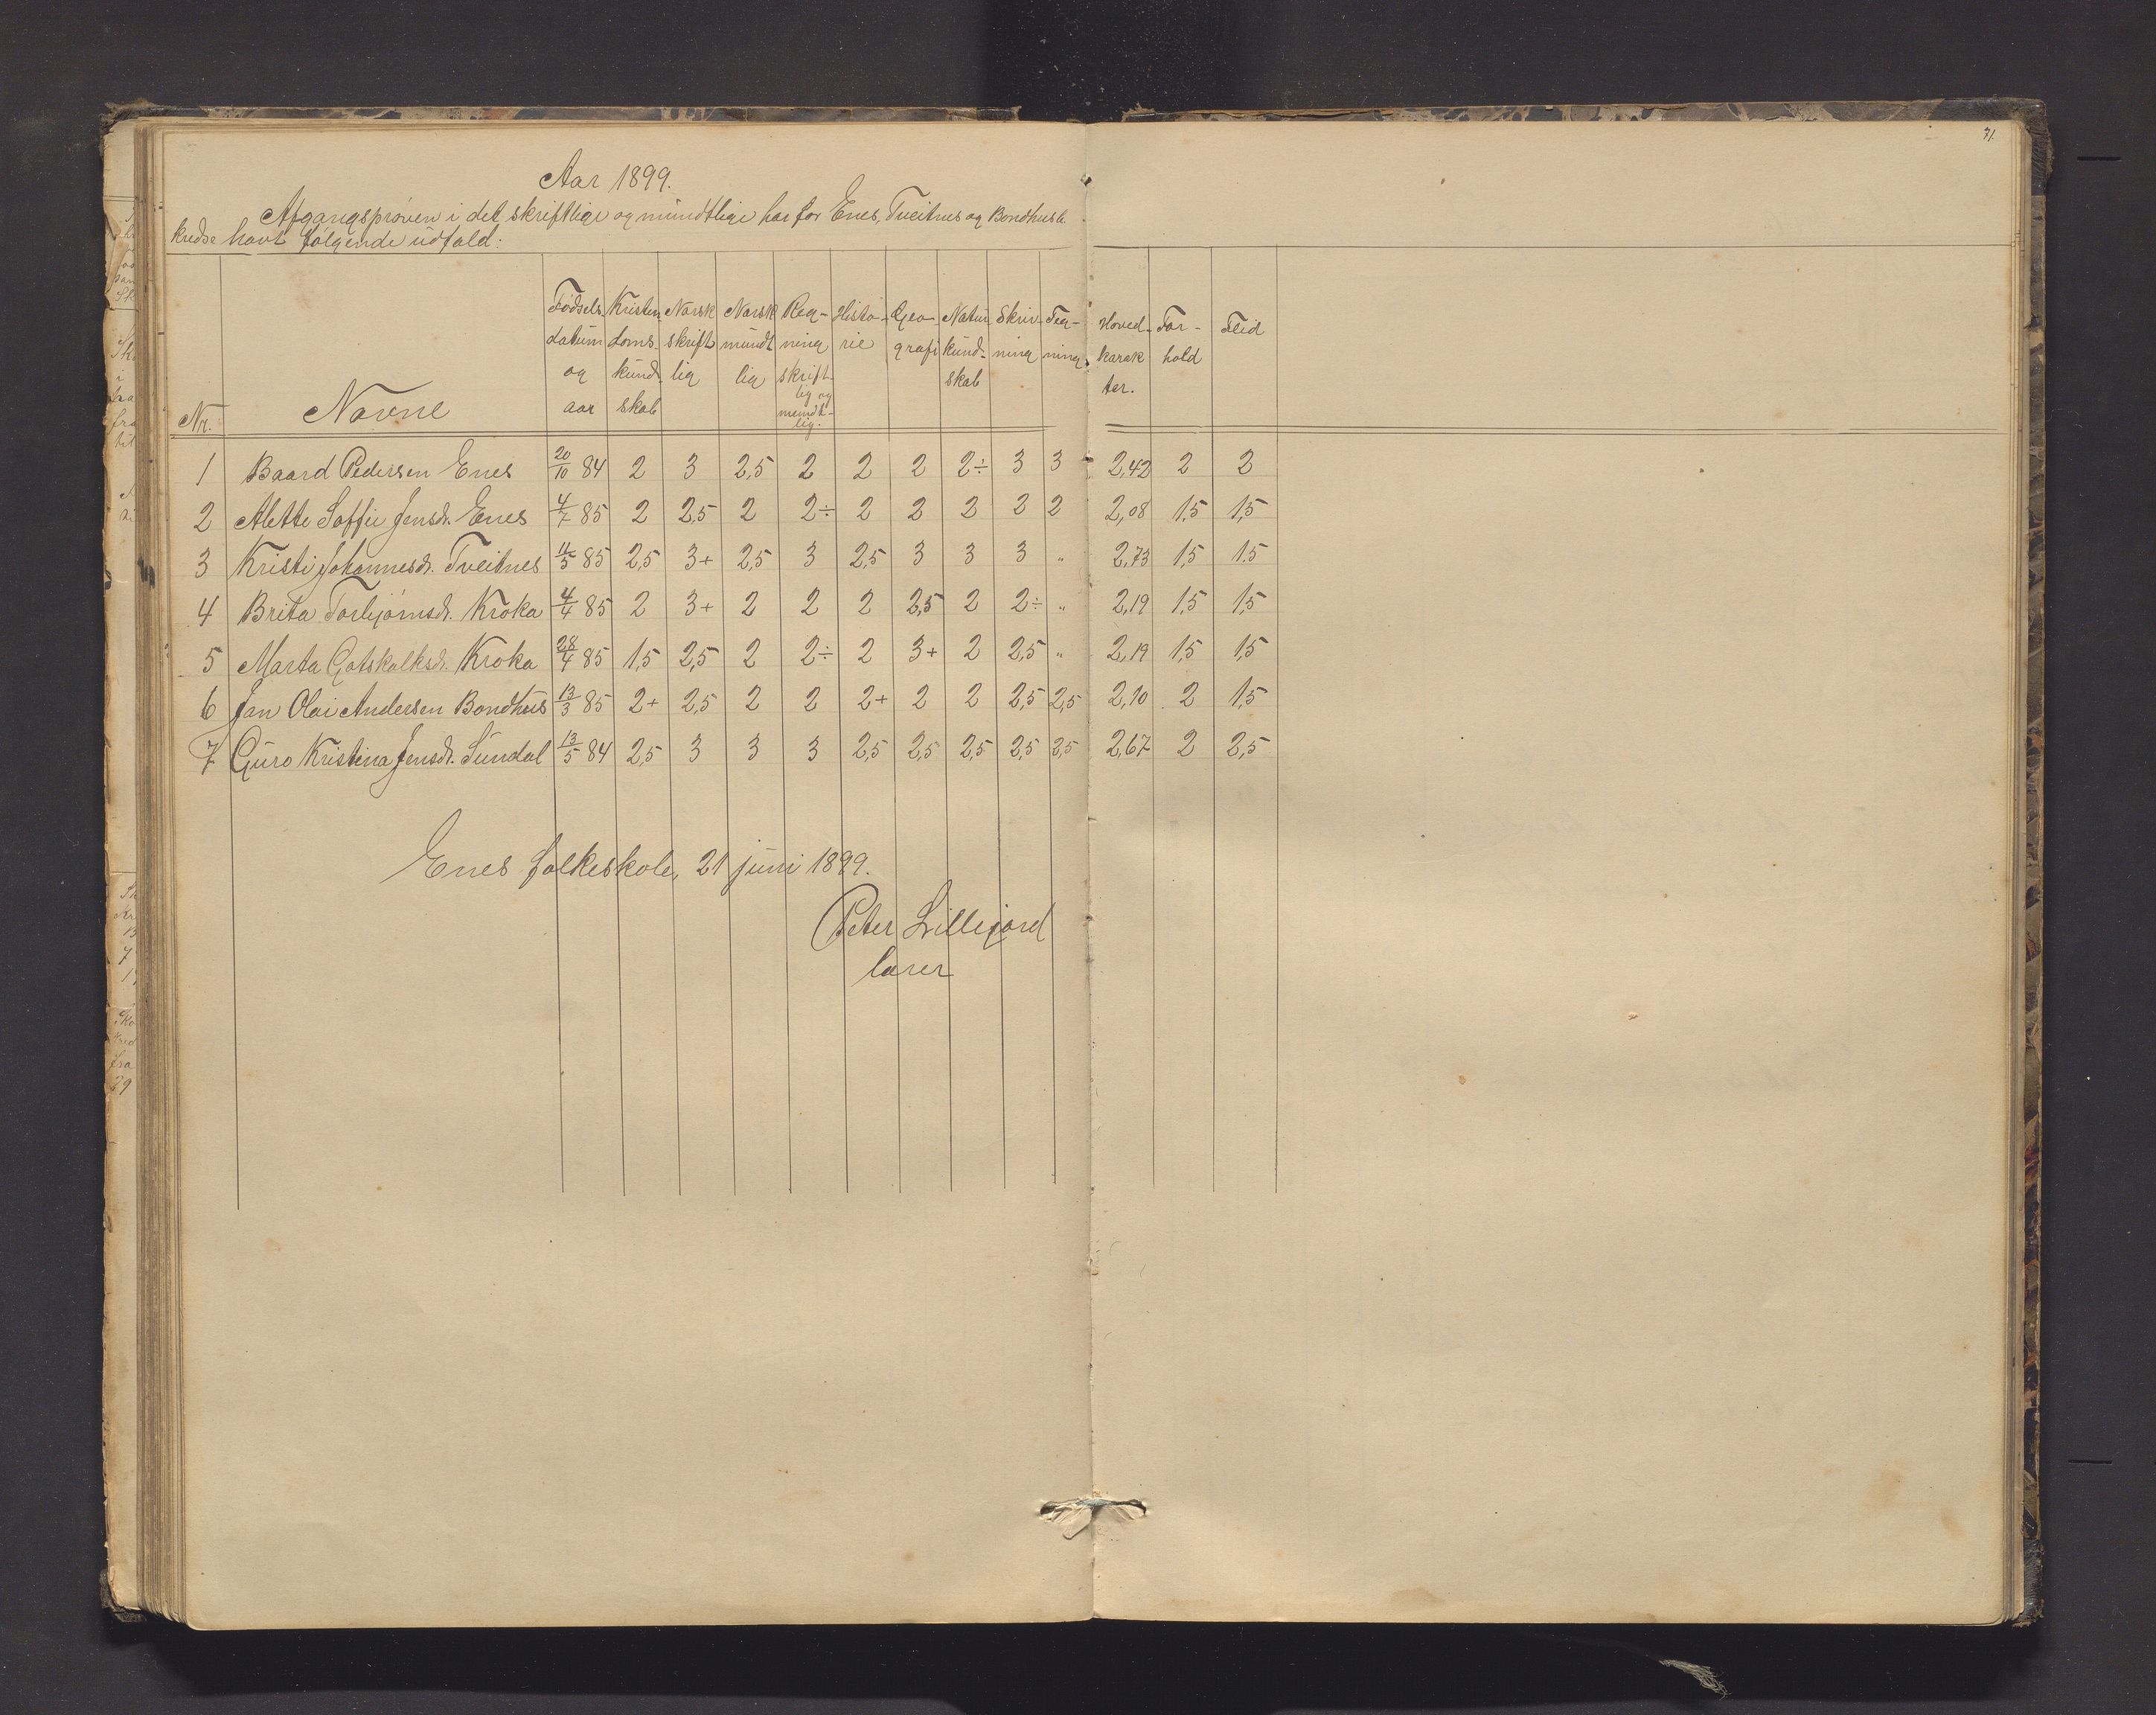 71.
Aar 1899.
Afgangsprøven i det skriftlige og mundtlige har for Enes, Tveitnes og Bondhus
kredse havt følgende udfald:
Nr. Navne Fødsels datum og aar Kristendoms kundskab Norsk skriftlig Norsk mundtlig Regning skriftlig og mundtlig. Historie Geografi Naturkundskab Skrivning Tegning Hovedkarakter. Forhold Flid
1 Baard Pedersen Enes 20/10 84 2 3 2,5 2 2 2 2÷ 3 3 2,42 2 2
2 Alette Soffie Jensd. Enes 4/7 85 2 2,5 2 2÷ 2 2 2 2 2 2,08 1,5 1,5
3 Kristi Johannesd. Tveitnes 11/5 85 2,5 3+ 2,5 3 2,5 3 3 3 " 2,73 1,5 1.5
4 Brita Torbjørnsd. Kroka 4/4 85 2 3+ 2 2 2 2,5 2 2÷ " 2,19 1,5 1,5
5 Marta Gotskalksd. Kroka 28/4 85 1,5 2,5 2 2÷ 2 3+ 2 2,5 " 2,19 1,5 1,5
6 Jan Olai Andersen Bondhus 13/3 85 2+ 2,5 2 2 2+ 2 2 2,5 2,5 2,10 2 1,5
7 Guro Kristina Jensd. Sundal 13/5 84 2,5 3 3 3 2,5 2,5 2,5 2,5 2,5 2,67 2 2,5
Enes folkeskole, 21 juni 1899.
Peter Lillejord
lærer